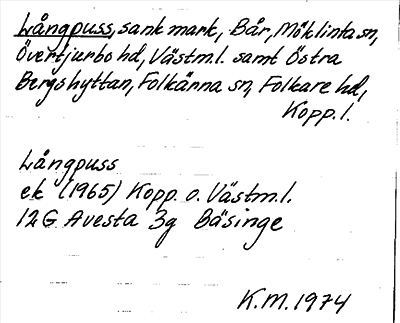 Långpuss, sank mark, Bår, Möklinta sn,
Övertjurbo hd, Västm.l. samt Östra
Bergshyttan, Folkärna sn, Folkare hd,
Kopp. l.
Långpuss
ek (1965) Kopp. o. Västm.l.
12G Avesta 3g Bäsinge
K.M. 1974